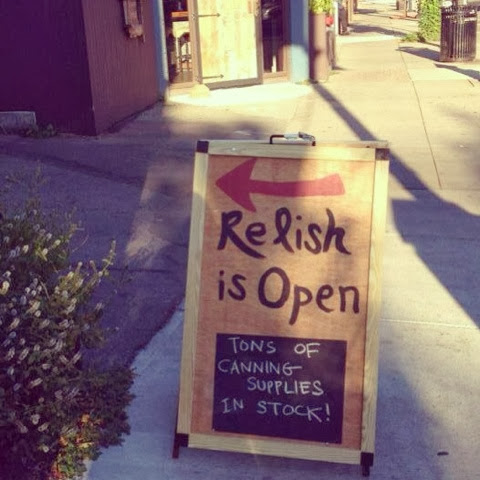 Relish
is Open
TONS OF
CANNING
SUPPLIES
IN STOCK!